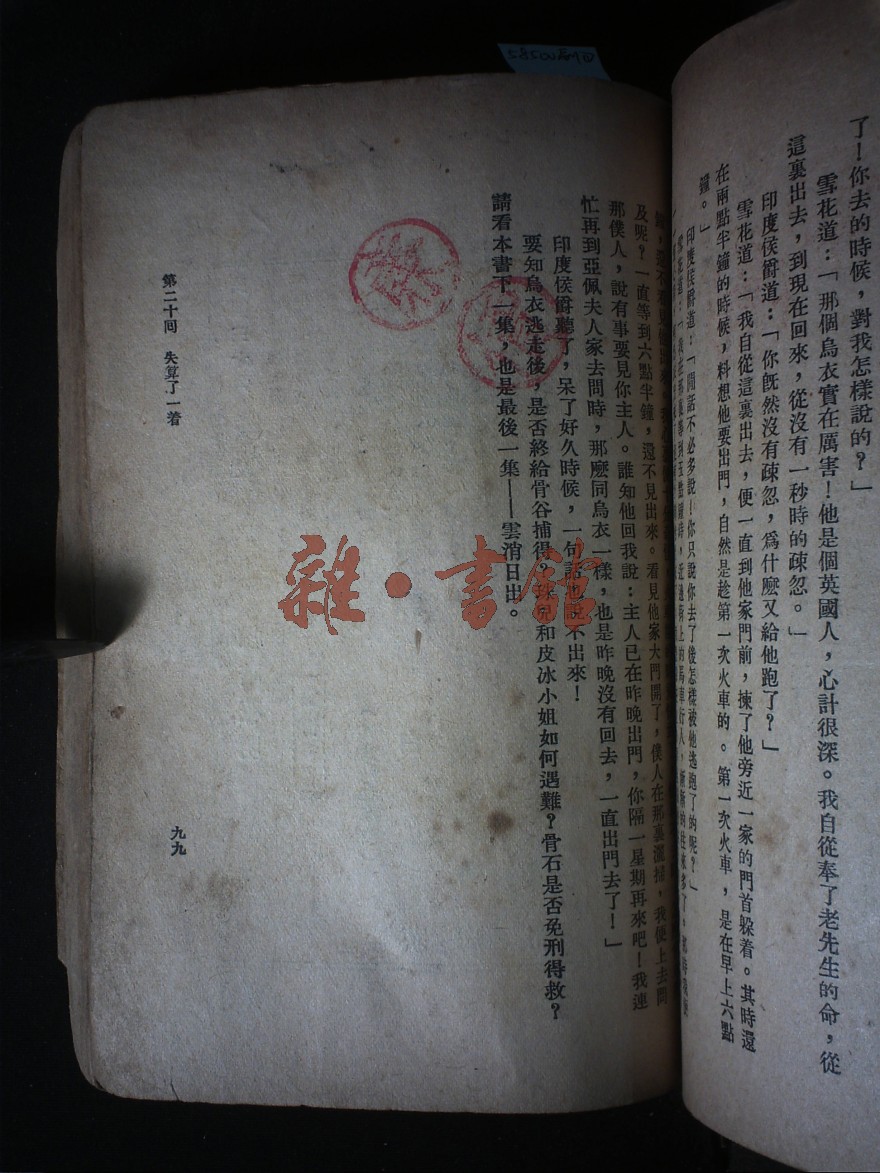 了！你去的時候，對我怎樣說的？」
雪花道：「那個烏衣實在厲害！他是個英國人，心計很深。我自從奉了老先生的命，從
這裏出去，到現在回來，從沒有一秒時的疎忽。」
印度侯爵道：「你旣然沒有疎忽，爲什麽又給他跑了？」
雪花道：「我自從這裏出去，便一直到他家門前，揀了他旁近一家的門首躲着。其時還
在兩點半鐘的時候，料想他要出門，自然是趁第一次火車的。第一次火車，是在早上六點
鐘。」
印度侯爵道：「閒話不必多說！你只說你去了後怎樣被他逃跑了的呢？」
及呢？一直等到六點半鐘，還不見出來。看見他家大門開了，僕人在那裏灑掃，我便上去問
那僕人，說有事要見你主人。誰知他回我說：主人已在昨晚出門，你隔一星期再來吧！我連
忙再到亞佩夫人家去問時，那麽同烏衣一樣，也是昨晚沒有回去，一直出門去了！」
印度侯爵聽了，呆了好久時候，一句話也說不出來！
要知烏衣逃走後，是否終給骨谷捕得？珠兒和皮冰小姐如何遇難？骨石是否免刑得救？
請看本書下一集，也是最後一集——雲消日出。
第二十回 失算了一着
九九
雜·書館